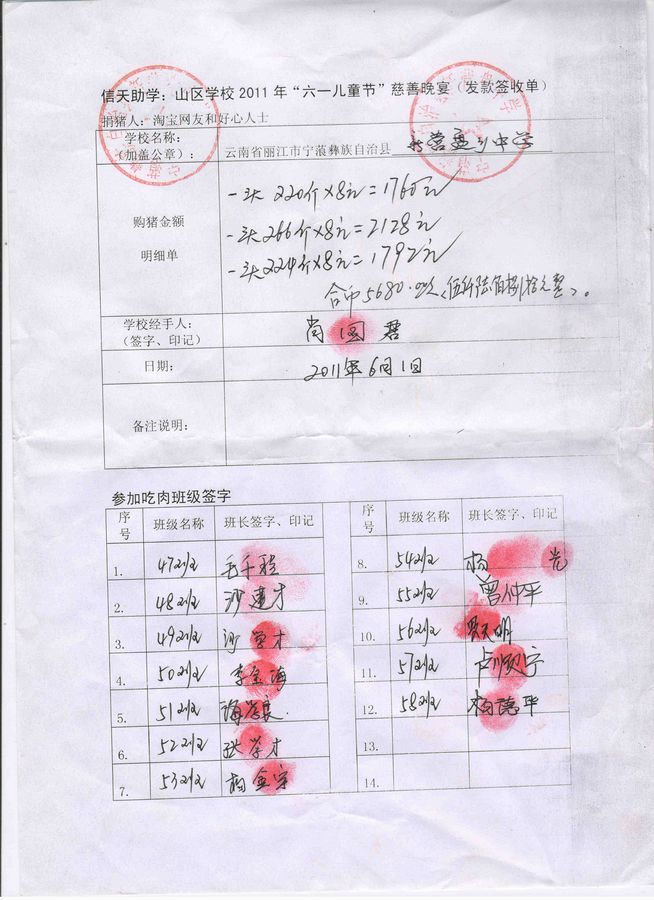 信天助学：山区学校 2011 年“六一儿童节”慈善晚宴（发款签收单）
捐猪人：淘宝网友和好心人士
学校名称：
（加盖公章）：
云南省丽江市宁蒗彝族自治县 永宁乡中学
购猪金额
明细单
一头 220斤×8元=1760元
一头266斤×8元=2128元
一头224斤×8元=1792元
合币5680.00元(伍仟陆佰捌拾元整)。
学校经手人：
（签字、印记）
肖国君
日期：
2011年6月1日
备注说明：
参加吃肉班级签字
序号 班级名称 班长签字、印记
1. 47班 毛千程
2. 48班 沙建才
3. 49班 沙学才
4. 50班 李金海
5. 51班 海学良
6. 52班 张学才
7. 53班 杨金宗
序号 班级名称 班长签字、印记
8. 54班 杨 光
9. 55班 曾仲平
10. 56班 明
11. 57班 卢顺宁
12. 58班 杨德华
13.
14.